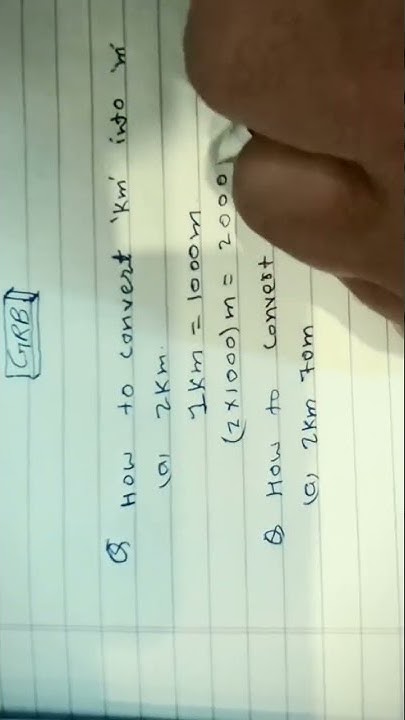 GRB
Q How to convert 'Km' into 'm'
(a) 2Km.
1Km = 1000m
(2×1000)m = 2000
Q How to convert
(a) 2Km 70m